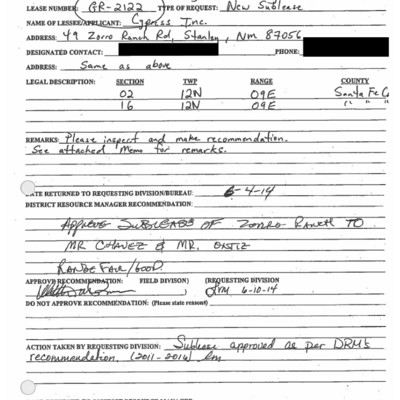 LEASE NUMBER: GR-2122 TYPE OF REQUEST: New Sublease
NAME OF LESSEE/APPLICANT: Cypress Inc.
ADDRESS: 49 Zorro Ranch Rd, Stanley, NM 87056
DESIGNATED CONTACT: PHONE:
ADDRESS: Same as above
LEGAL DESCRIPTION: SECTION TWP RANGE COUNTY
02 12N 09E Santa Fe Co
16 12N 09E " " "
REMARKS: Please inspect and make recommendation.
See attached Memo for remarks.
DATE RETURNED TO REQUESTING DIVISION/BUREAU: 6-4-14
DISTRICT RESOURCE MANAGER RECOMMENDATION:
APPROVE SUBLEASE OF ZORRO RANCH TO
MR CHAVEZ & MR.
RANGE FAIR/GOOD.
APPROVE RECOMMENDATION: FIELD DIVISON) (REQUESTING DIVISION
6-10-14
DO NOT APPROVE RECOMMENDATION: (Please state reason)
ACTION TAKEN BY REQUESTING DIVISION: Sublease approved as per DRM's
recommendation. (2011-2016) lm